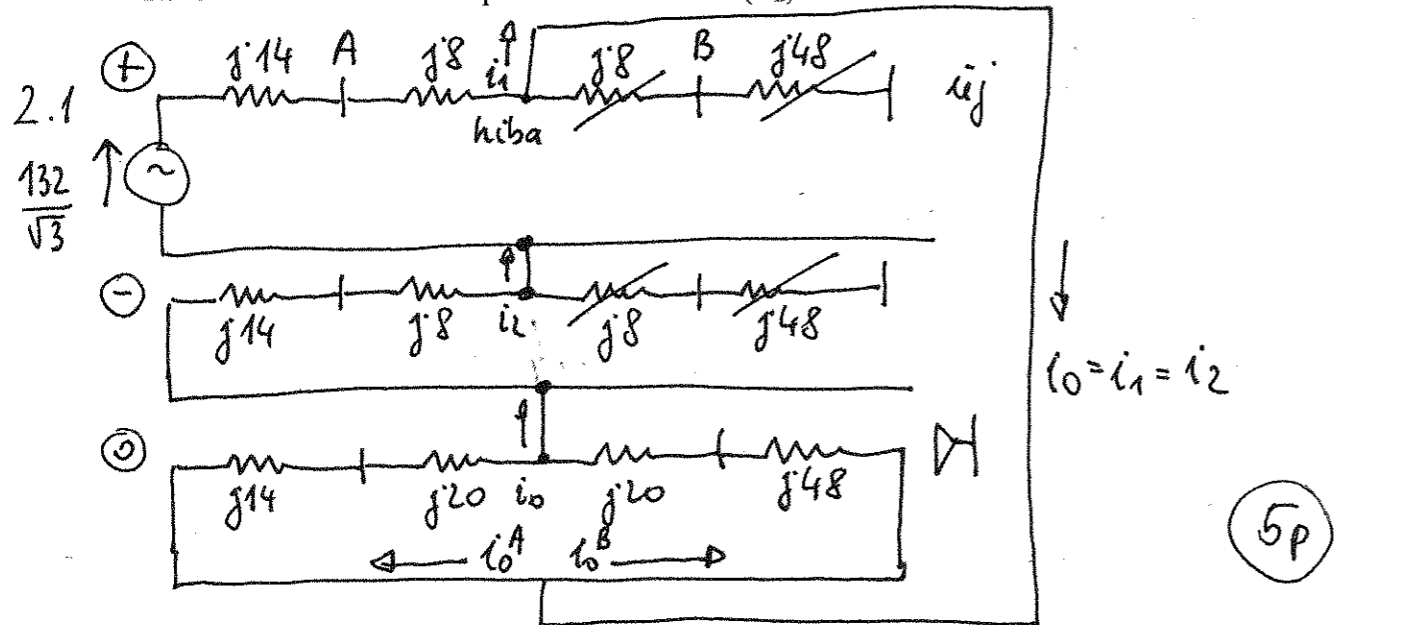 ⊕ j14 A j8 i₁ j8 B j48 üj
2.1 hiba
132/√3
~
⊖ j14 j8 i₂ j8 j48
i₀ = i₁ = i₂
⓪ j14 j20 i₀ j20 j48
i₀ᴬ i₀ᴮ
5p